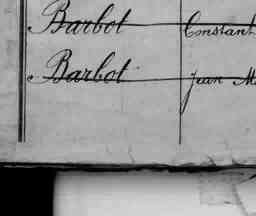 Barbot Constant
Barbot Jean M